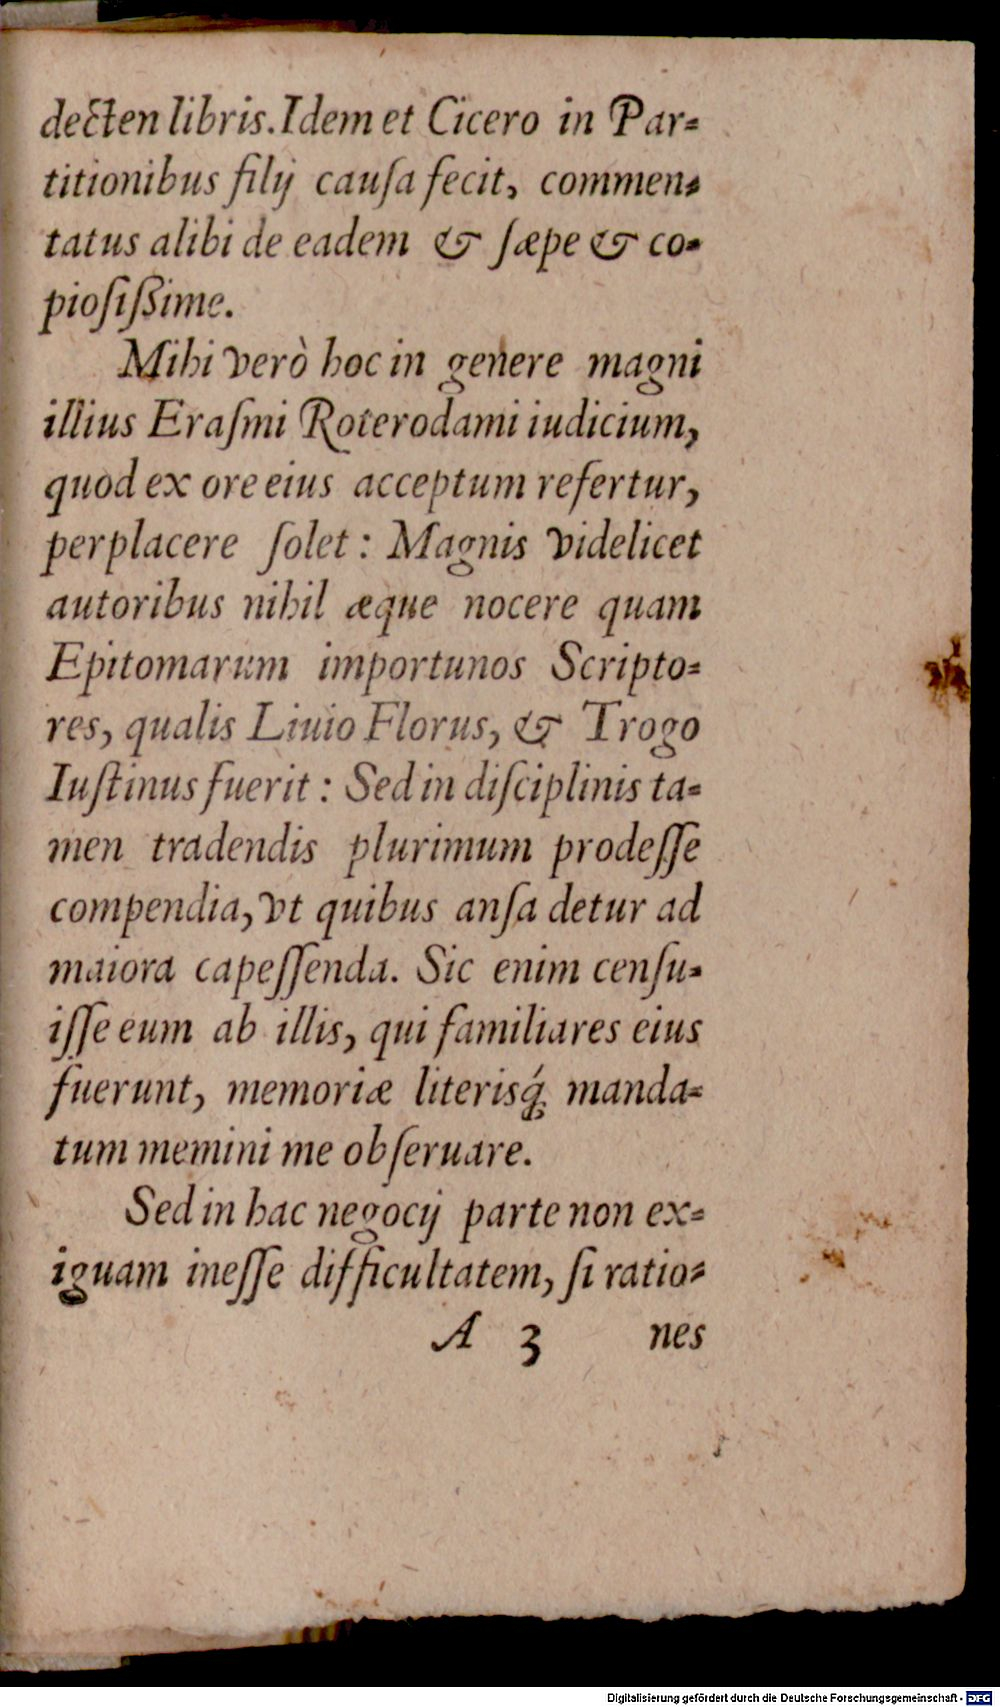 decten libris. Idem et Cicero in Par-
titionibus filij cauſa fecit, commen-
tatus alibi de eadem & ſæpe & co-
pioſiſßime.
Mihi verò hoc in genere magni
illius Eraſmi Roterodami iudicium,
quod ex ore eius acceptum refertur,
perplacere ſolet: Magnis videlicet
autoribus nihil æque nocere quam
Epitomarum importunos Scripto-
res, qualis Liuio Florus, & Trogo
Iuſtinus fuerit: Sed in diſciplinis ta-
men tradendis plurimum prodeſſe
compendia, vt quibus anſa detur ad
maiora capeſſenda. Sic enim cenſu-
iſſe eum ab illis, qui familiares eius
fuerunt, memoriæ literisq́; manda-
tum memini me obſeruare.
Sed in hac negocij parte non ex-
iguam ineſſe difficultatem, ſi ratio-
A 3 nes
Digitalisierung gefördert durch die Deutsche Forschungsgemeinschaft - DFG